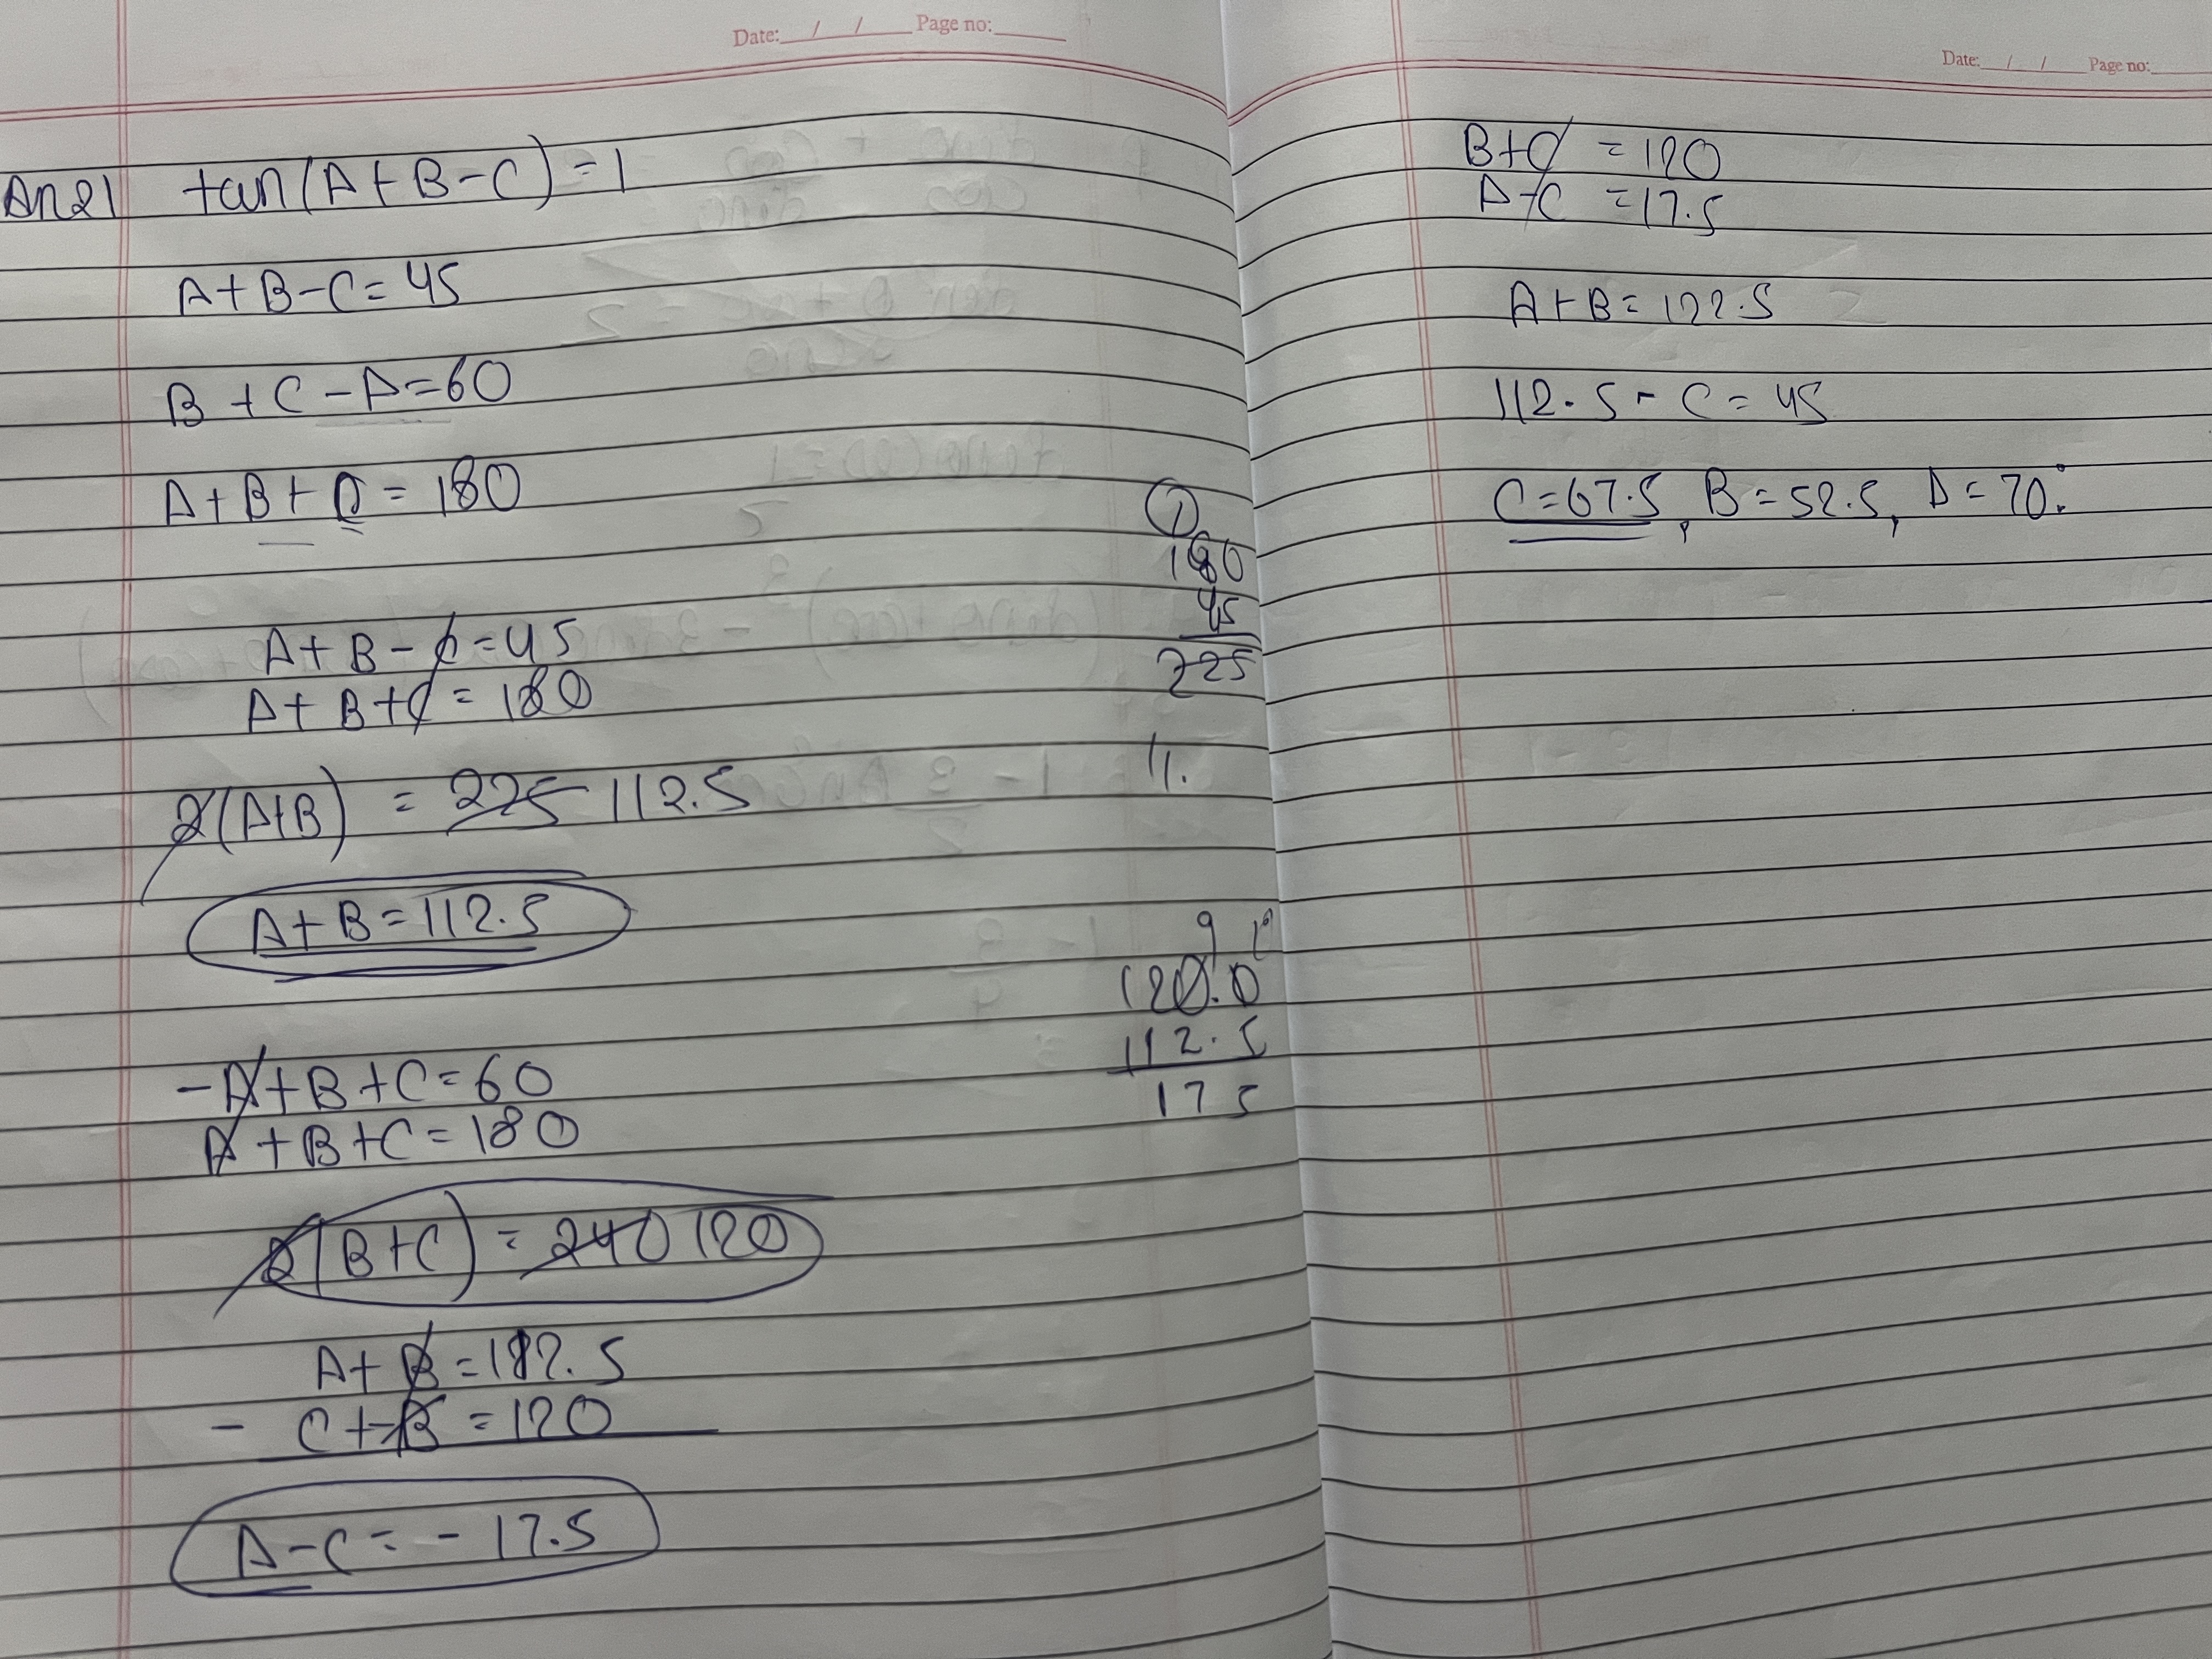 Date: / / Page no:
Ans 21 tan(A+B-C)=1
A+B-C=45
B+C-A=60
A+B+C=180
1
180
45
225
A+B-C=45
A+B+C=180
2(A+B) = 225 112.5
11.
A+B=112.5
9 10
120.0
112.5
17 5
-A+B+C=60
A+B+C=180
2(B+C) = 240 120
A+B=112.5
- C+B=120
A-C=-17.5
Date: / / Page no:
B+C =120
A-C =17.5
A+B=122.5
112.5-C=45
C=67.5, B=52.5, A=70.